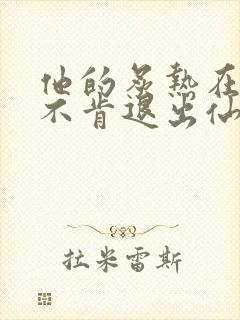 他的炙热在
不肯退出仙
拉米雷斯